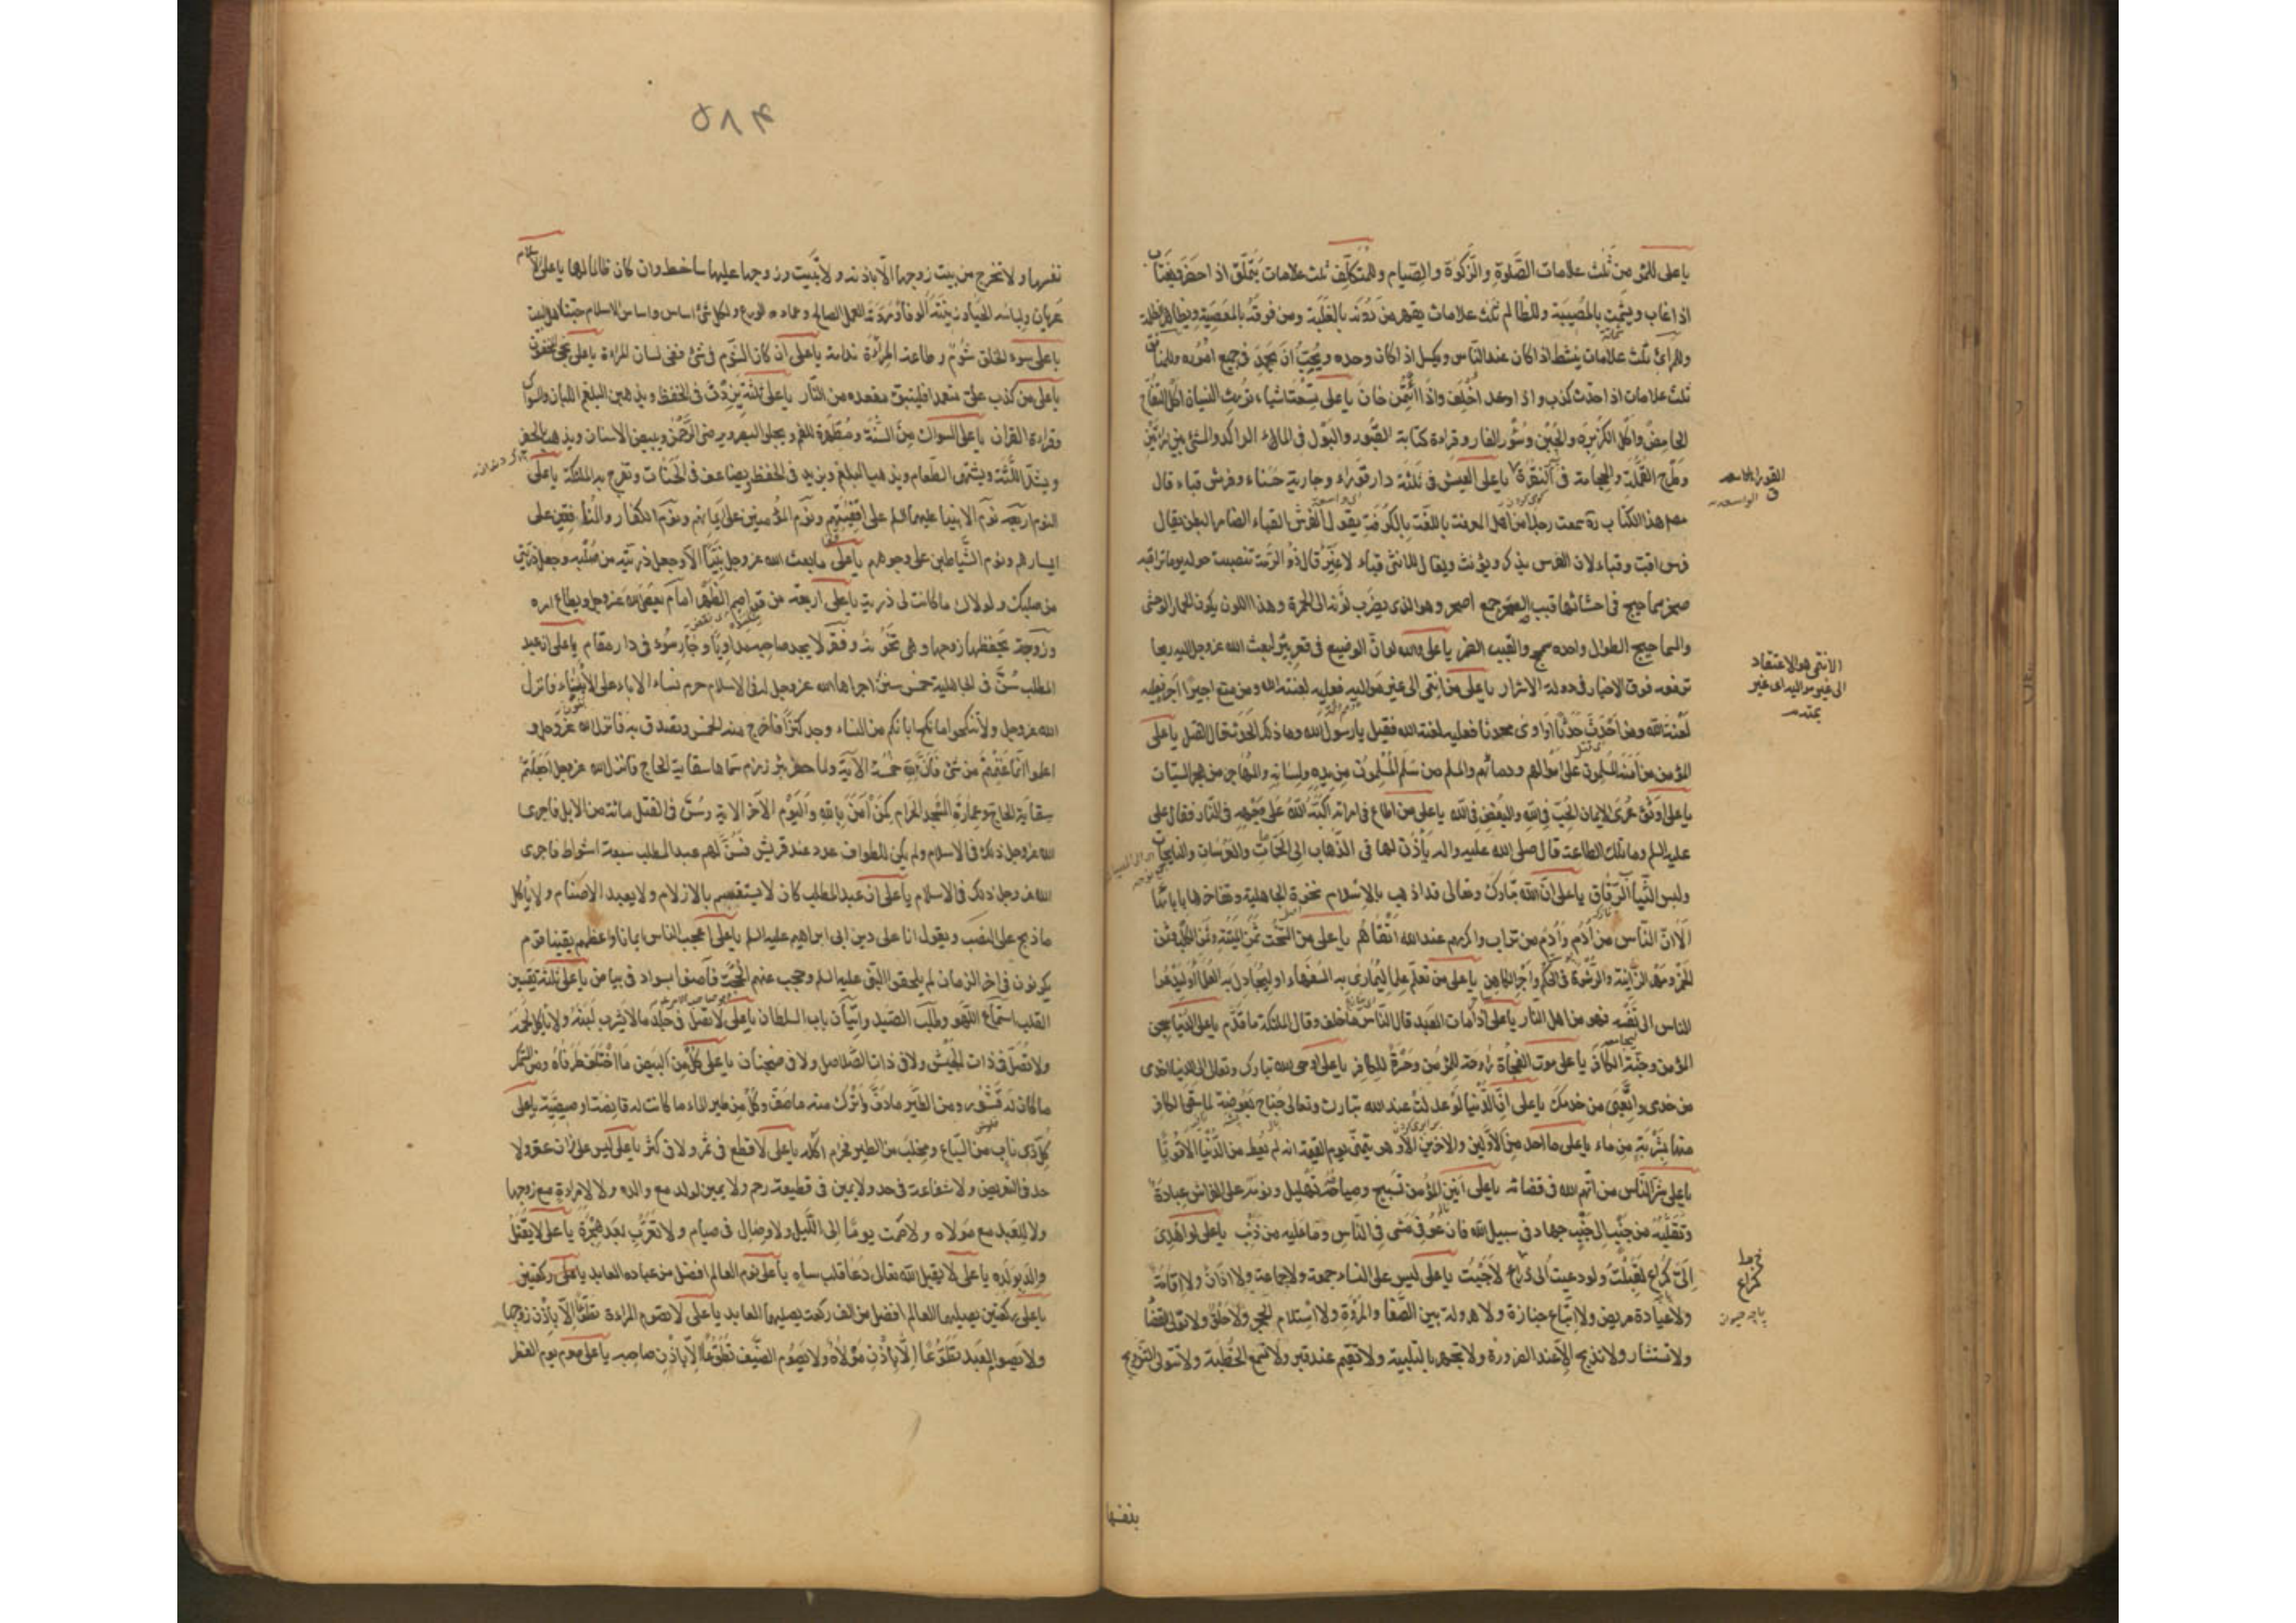 يا علي للمؤمن ثلث علامات الصَّلوة والزَّكوة والصّيام وللمتكلّف ثلث علامات يتملّق اذا حضر ويغتاب
اذا غاب ويشمت بالمصيبة وللظالم ثلث علامات يقهر من دونه بالغلبة ومن فوقه بالمعصية ويظاهر الظلمة
وللمرائي ثلث علامات ينشط اذا كان عند النّاس ويكسل اذا كان وحده ويحبّ ان يحمد في جميع اموره وللمنافق
ثلث علامات اذا حدّث كذب واذا وعد اخلف واذا ائتمن خان يا علي تسعة اشياء تورث النسيان اكل التفّاح
الحامض واكل الكزبرة والجبن وسؤر الفار وقراءة كتابة القبور والبول في الماء الراكد والمشي بين امرأتين
وطرح القملة والحجامة في النقرة يا علي العيش في ثلثة دار قوراء وجارية حسناء وفرس قباء قال
مصنف هذا الكتاب ره سمعت رجلا من اهل المعرفة باللغة بالكوفة يقول الفرس القباء الضامر البطن يقال
فرس اقب وقباء لان الفرس يذكر ويؤنث ويقال للانثى قباء لا غير قال ذو الرمة تنصبت حوله يوما تراقبه
صحر سماحيج في احشائها قبب الصحر جمع اصحر وهو الذي يضرب لونه الى الحمرة وهذا اللون يكون للحمار الوحشي
والسماحيج الطوال واحده سمحج والقبب الضمر يا علي والله لو ان الوضيع في قعر بئر لبعث الله عز وجل اليه ريحا
ترفعه فوق الاخيار في دولة الاشرار يا علي من انتمى الى غير مواليه فعليه لعنة الله ومن منع اجيرا اجره فعليه
لعنة الله ومن احدث حدثا او آوى محدثا فعليه لعنة الله فقيل يا رسول الله وما ذلك الحدث قال القتل يا علي
المؤمن من امنه المسلمون على اموالهم ودمائهم والمسلم من سلم المسلمون من يده ولسانه والمهاجر من هجر السيّئات
يا علي اوثق عرى الايمان الحبّ في الله والبغض في الله يا علي من اطاع امراته اكبّه الله على وجهه في النار فقال علي
عليه السلم وما تلك الطاعة قال صلى الله عليه واله يأذن لها في الذّهاب الى الحمّامات والعرسات والنايحات
ولبس الثّياب الرّقاق يا علي انّ الله تبارك وتعالى قد اذهب بالاسلام نخوة الجاهلية وتفاخرها بابائها
الا انّ النّاس من آدم وآدم من تراب واكرمهم عند الله اتقاهم يا علي من السّحت ثمن الميتة وثمن الكلب وثمن
الخمر ومهر الزّانية والرّشوة في الحكم واجر الكاهن يا علي من تعلّم علما ليماري به السّفهاء او ليجادل به العلماء او ليدعوا
الناس الى نفسه فهو من اهل النّار يا علي اذا مات العبد قال النّاس ما خلف وقال الملئكة ما قدّم يا علي الدنيا سجن
المؤمن وجنّة الكافر يا علي موت الفجأة راحة للمؤمن وحسرة للكافر يا علي اوحى الله تبارك وتعالى الى الدنيا اخدمي
من خدمني واتعبي من خدمك يا علي انّ الدّنيا لو عدلت عند الله تبارك وتعالى جناح بعوضة لما سقى الكافر
منها شربة من ماء يا علي ما احد من الاوّلين والاخرين الا وهو يتمنّى يوم القيمة انه لم يعط من الدّنيا الا قوتا
يا علي شرّ النّاس من اتّهم الله في قضائه يا علي انين المؤمن تسبيح وصياحه تهليل ونومه على الفراش عبادة
وتقلّبه من جنب الى جنب جهاد في سبيل الله فان عوفي مشى في النّاس وما عليه من ذنب يا علي لو اهدي
اليّ كراع لقبلت ولو دعيت الى ذراع لاجبت يا علي ليس على النساء جمعة ولا جماعة ولا اذان ولا اقامة
ولا عيادة مريض ولا اتّباع جنازة ولا هرولة بين الصّفا والمروة ولا استلام الحجر ولا حلق ولا تولّى القضاء
ولا تستشار ولا تذبح الّا عند الضرورة ولا تجهر بالتلبية ولا تقيم عند قبر ولا تسمع الخطبة ولا تتولى التزويج
الانتمى هو الاعتقاد
الى غير مواليه اى غير
كراع
بنفسها
۵۸۴
نفسها ولا تخرج من بيت زوجها الّا باذنه ولا تبيت وزوجها عليها ساخط وان كان ظالما لها يا علي الاسلام
عريان ولباسه الحياء وزينته الوفاء ومروّته العمل الصالح وعماده الورع ولكل شئ اساس واساس الاسلام حبّنا اهل البيت
يا علي سوء الخلق شؤم وطاعة المراة ندامة يا علي ان كان الشوم في شئ ففي لسان المراة يا علي نجى المخفون
يا علي من كذب عليّ متعمدا فليتبوّء مقعده من النّار يا علي ثلثة يزدن في الحفظ ويذهبن البلغم اللبان والسواك
وقراءة القرآن يا علي السواك من السّنّة ومطهرة للفم ويجلو البصر ويرضي الرّحمن ويبيض الاسنان ويذهب بالحفر
ويشدّ اللّثة ويشهّي الطّعام ويذهب بالبلغم ويزيد في الحفظ ويضاعف في الحسنات وتفرح به الملئكة يا علي
النوم اربعة نوم الانبياء عليهم السلم على اقفيتهم ونوم المؤمنين على ايمانهم ونوم الكفار والمنافقين على
ايسارهم ونوم الشّياطين على وجوههم يا علي ما بعث الله عز وجل نبيّا الّا وجعل ذريّته من صلبه وجعل ذريّتي
من صلبك ولولاك ما كانت لي ذرية يا علي اربعة من قواصم الظّهر امام يعصي الله عز وجل ويطاع امره
وزوجة يحفظها زوجها وهي تخونه وفقر لا يجد صاحبه مداويا وجار سوء في دار مقام يا علي ان عبد
المطلب سنّ في الجاهلية خمس سنن اجراها الله عز وجل له في الاسلام حرم نساء الاباء على الابناء فانزل
الله عز وجل ولا تنكحوا ما نكح اباؤكم من النساء ووجد كنزا فاخرج منه الخمس وتصدق به فانزل الله عز وجل و
اعلموا انّما غنمتم من شئ فانّ لله خمسه الآية ولما حفر بئر زمزم سمّاها سقاية الحاج فانزل الله عز وجل اجعلتم
سقاية الحاج وعمارة المسجد الحرام كمن آمن بالله واليوم الآخر الاية وسنّ في القتل مائة من الابل فاجرى
الله عز وجل ذلك في الاسلام ولم يكن للطواف عدد عند قريش فسنّ لهم عبد المطلب سبعة اشواط فاجرى
الله عز وجل ذلك في الاسلام يا علي ان عبد المطلب كان لا يستقسم بالازلام ولا يعبد الاصنام ولا يأكل
ما ذبح على النصب ويقول انا على دين ابي ابراهيم عليه السلم يا علي اعجب الناس ايمانا واعظمهم يقينا قوم
يكونون في اخر الزمان لم يلحقوا النبيّ عليه السلم وحجب عنهم الحجّة فآمنوا بسواد في بياض يا علي ثلثة يقسين
القلب استماع اللّهو وطلب الصّيد واتيان باب السلطان يا علي لا تصلّ في جلد ما لا يشرب لبنه ولا يؤكل لحمه
ولا تصلّ في ذات الجيش ولا في ذات الصّلاصل ولا في ضجنان يا علي كل من البيض ما اختلف طرفاه ومن السّمك
ما كان له قشور ومن الطّير ما دفّ واترك منه ما صفّ وكل من طير الماء ما كانت له قانصة او صيصيّة يا علي
كلّ ذي ناب من السّباع ومخلب من الطير فحرم اكله يا علي لا قطع في ثمر ولا في كثر يا علي ليس على زان عقر ولا
حد في التعريض ولا شفاعة في حد ولا يمين في قطيعة رحم ولا يمين لولد مع والده ولا لامراة مع زوجها
ولا للعبد مع مولاه ولا صمت يوما الى اللّيل ولا وصال في صيام ولا تعرّب بعد هجرة يا علي لا يقتل
والد بولده يا علي لا يقبل الله تعالى دعاء قلب ساه يا علي نوم العالم افضل من عباده العابد يا علي ركعتين
يا علي ركعتين يصليهما العالم افضل من الف ركعة يصليها العابد يا علي لا تصوم المراة تطوّعا الّا باذن زوجها
ولا يصوم العبد تطوّعا الّا باذن مولاه ولا يصوم الضّيف تطوّعا الّا باذن صاحبه يا علي صوم يوم الفطر